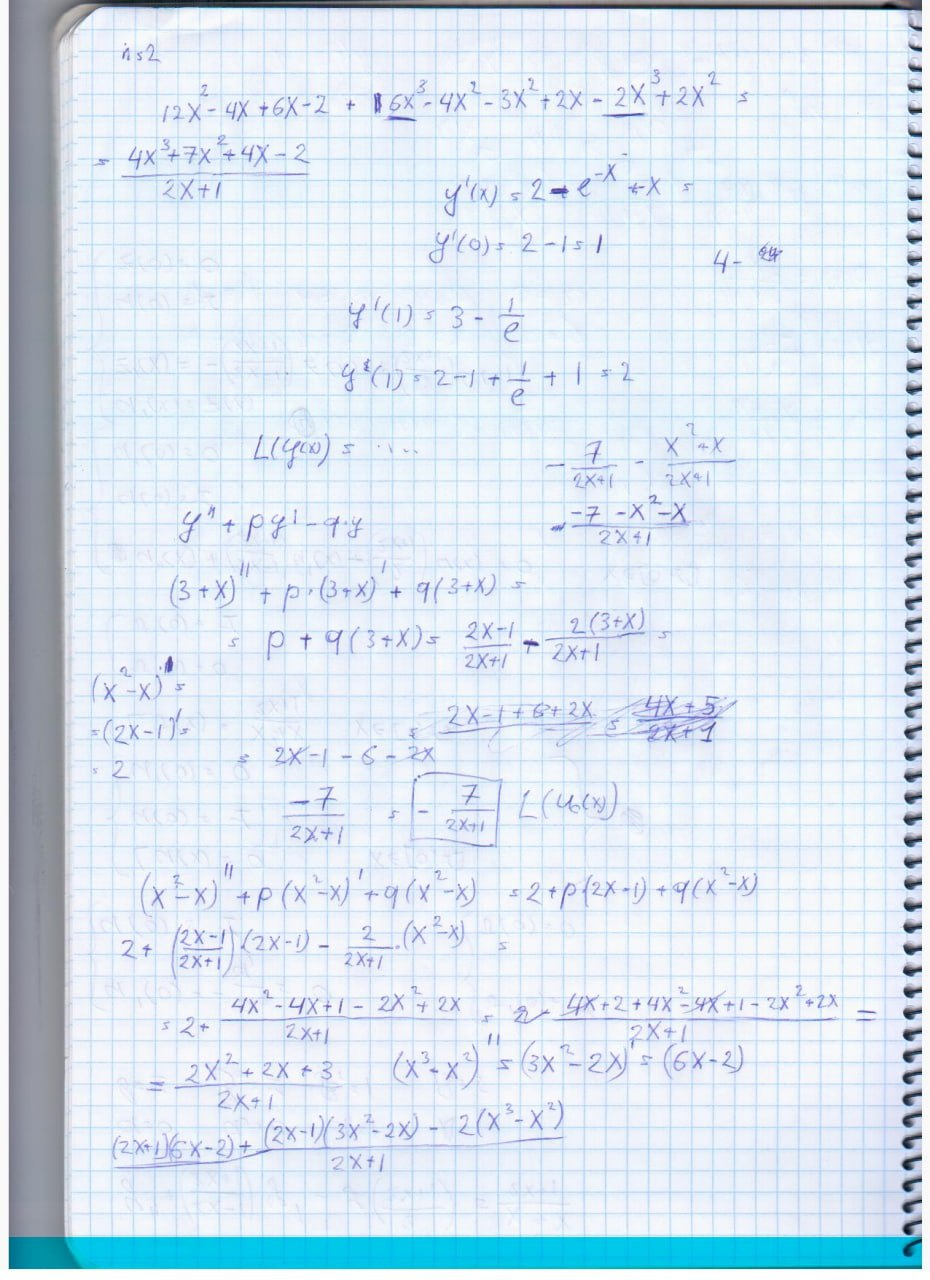 n=2
12x² - 4x + 6x - 2 + 6x³ - 4x² - 3x² + 2x - 2x³ + 2x² =
= (4x³ + 7x² + 4x - 2)/(2x+1)
y'(x) = 2 - e^(-x) + x =
y'(0) = 2 - 1 = 1
4 -
y'(1) = 3 - 1/e
y'(1) = 2 - 1 + 1/e + 1 = 2
L(y(x)) = ...
- 7/(2x+1) - (x² + x)/(2x+1)
= (-7 - x² - x)/(2x+1)
y'' + py' - q·y
(3+x)'' + p·(3+x)' + q(3+x) =
= p + q(3+x) = (2x-1)/(2x+1) - 2(3+x)/(2x+1) =
(x² - x)'' =
= (2x-1)' =
= 2
= (2x-1+6+2x) = (4x+5)/(2x+1)
= 2x - 1 - 6 - 2x
-7/(2x+1) = - 7/(2x+1) L(u₀(x))
(x² - x)'' + p(x² - x)' + q(x² - x) = 2 + p(2x-1) + q(x² - x)
2 + ((2x-1)/(2x+1))·(2x-1) - 2/(2x+1)·(x² - x) =
= 2 + (4x² - 4x + 1 - 2x² + 2x)/(2x+1) = 2 (4x + 2 + 4x² - 4x + 1 - 2x² + 2x)/(2x+1) =
= (2x² + 2x + 3)/(2x+1) (x³ - x²)'' = (3x² - 2x)' = (6x-2)
((2x+1)(6x-2) + (2x-1)(3x² - 2x) - 2(x³ - x²))/(2x+1)